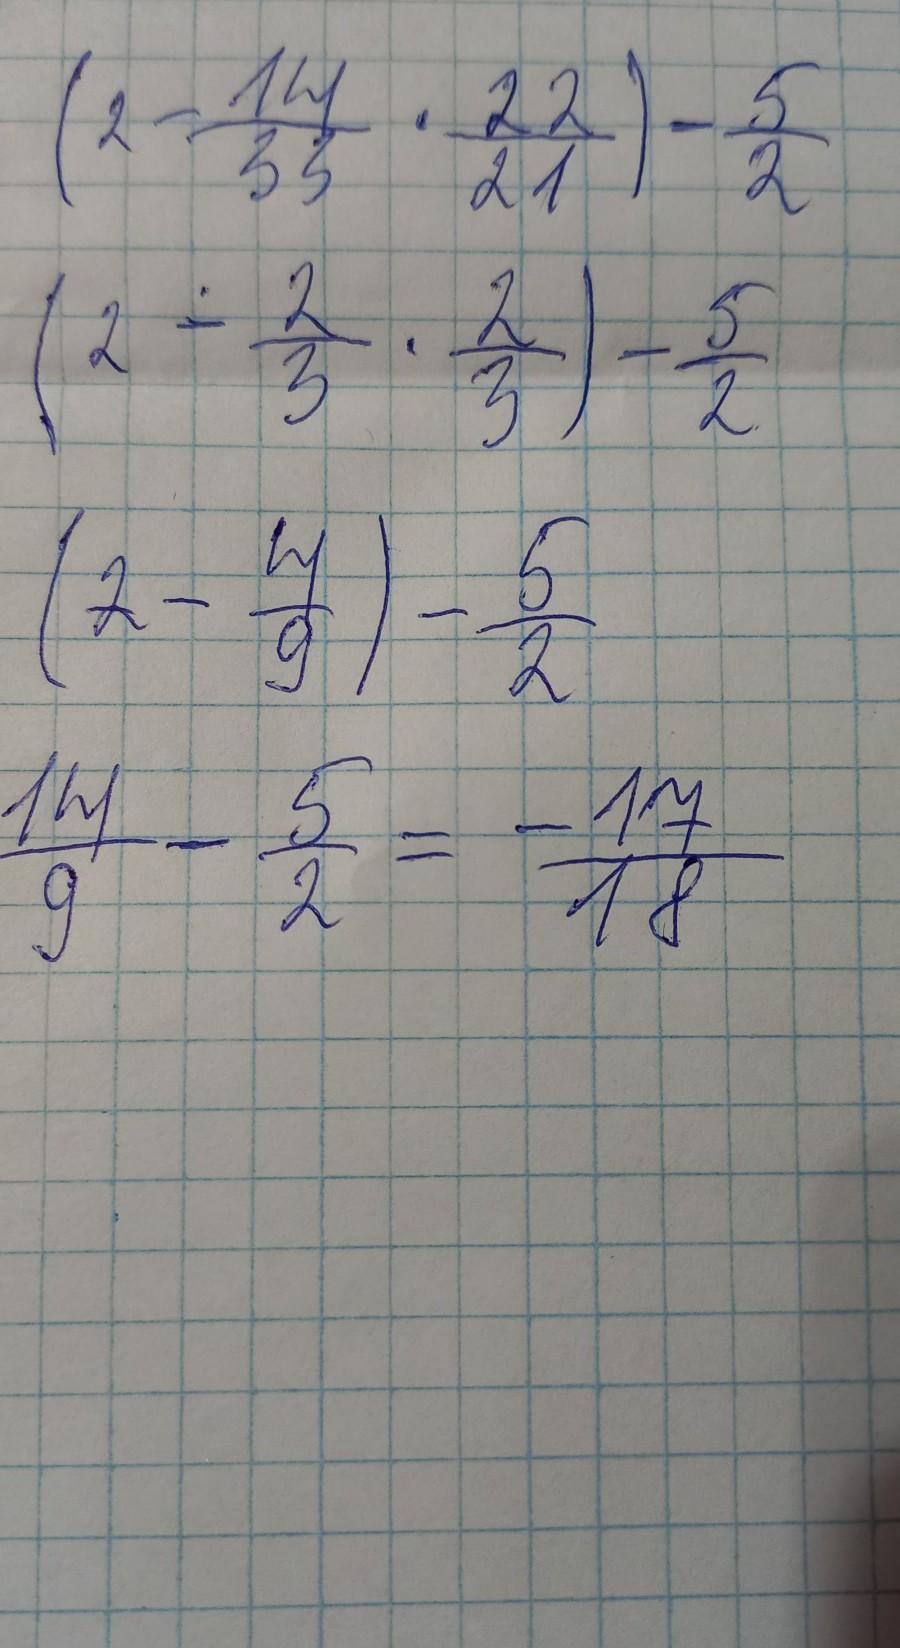 (2 - 14/33 · 22/21) - 5/2
(2 - 2/3 · 2/3) - 5/2
(2 - 4/9) - 5/2
14/9 - 5/2 = -17/18